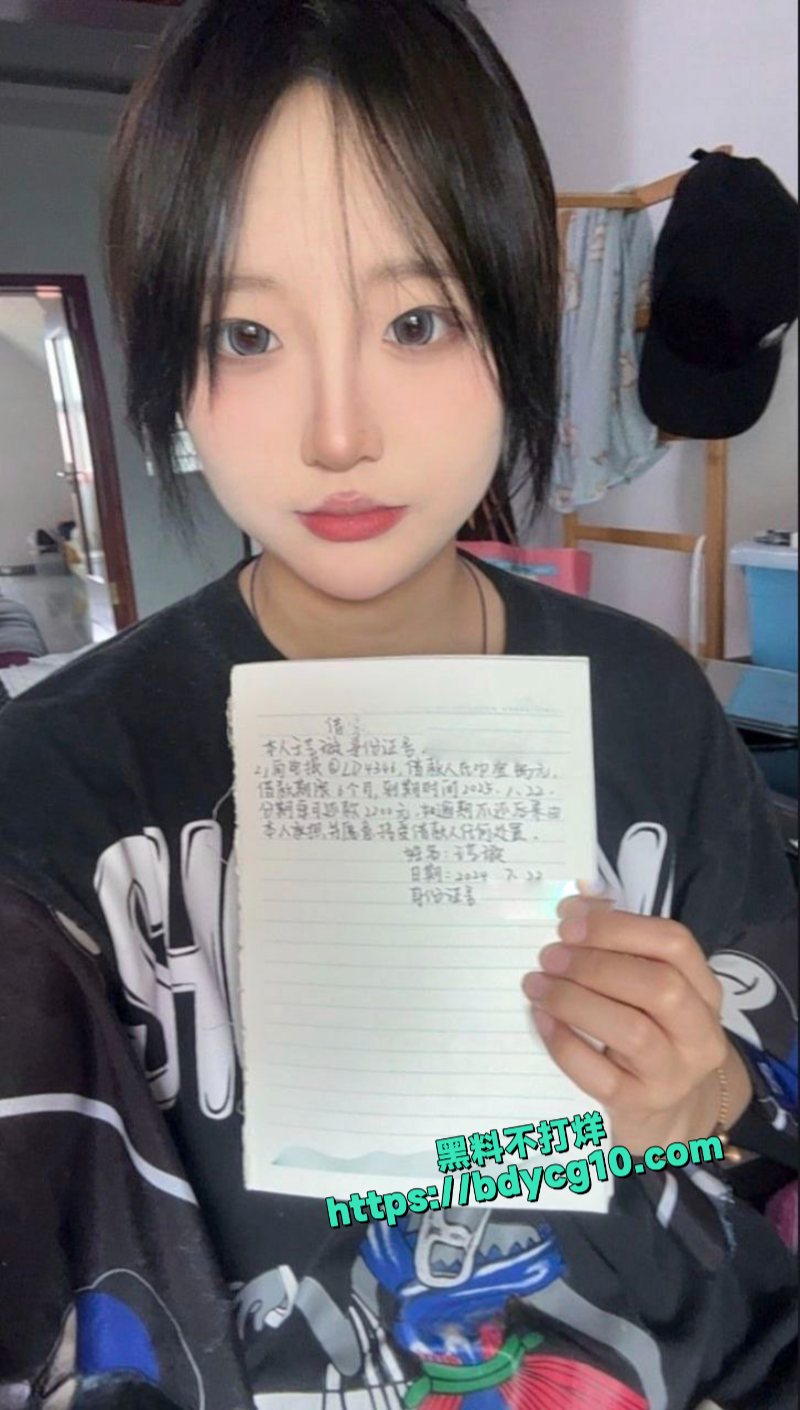 借
本人 身份证号
向电报@LD4346,借款人民币 元,
借款期限6个月,到期时间2025.1.22.
分期每月还款2200元,如逾期不还后果由
本人承担,并愿意接受借款人任何处置。
姓名:
日期:2024 7.22
身份证号
SH
黑料不打烊
https://bdycg10.com